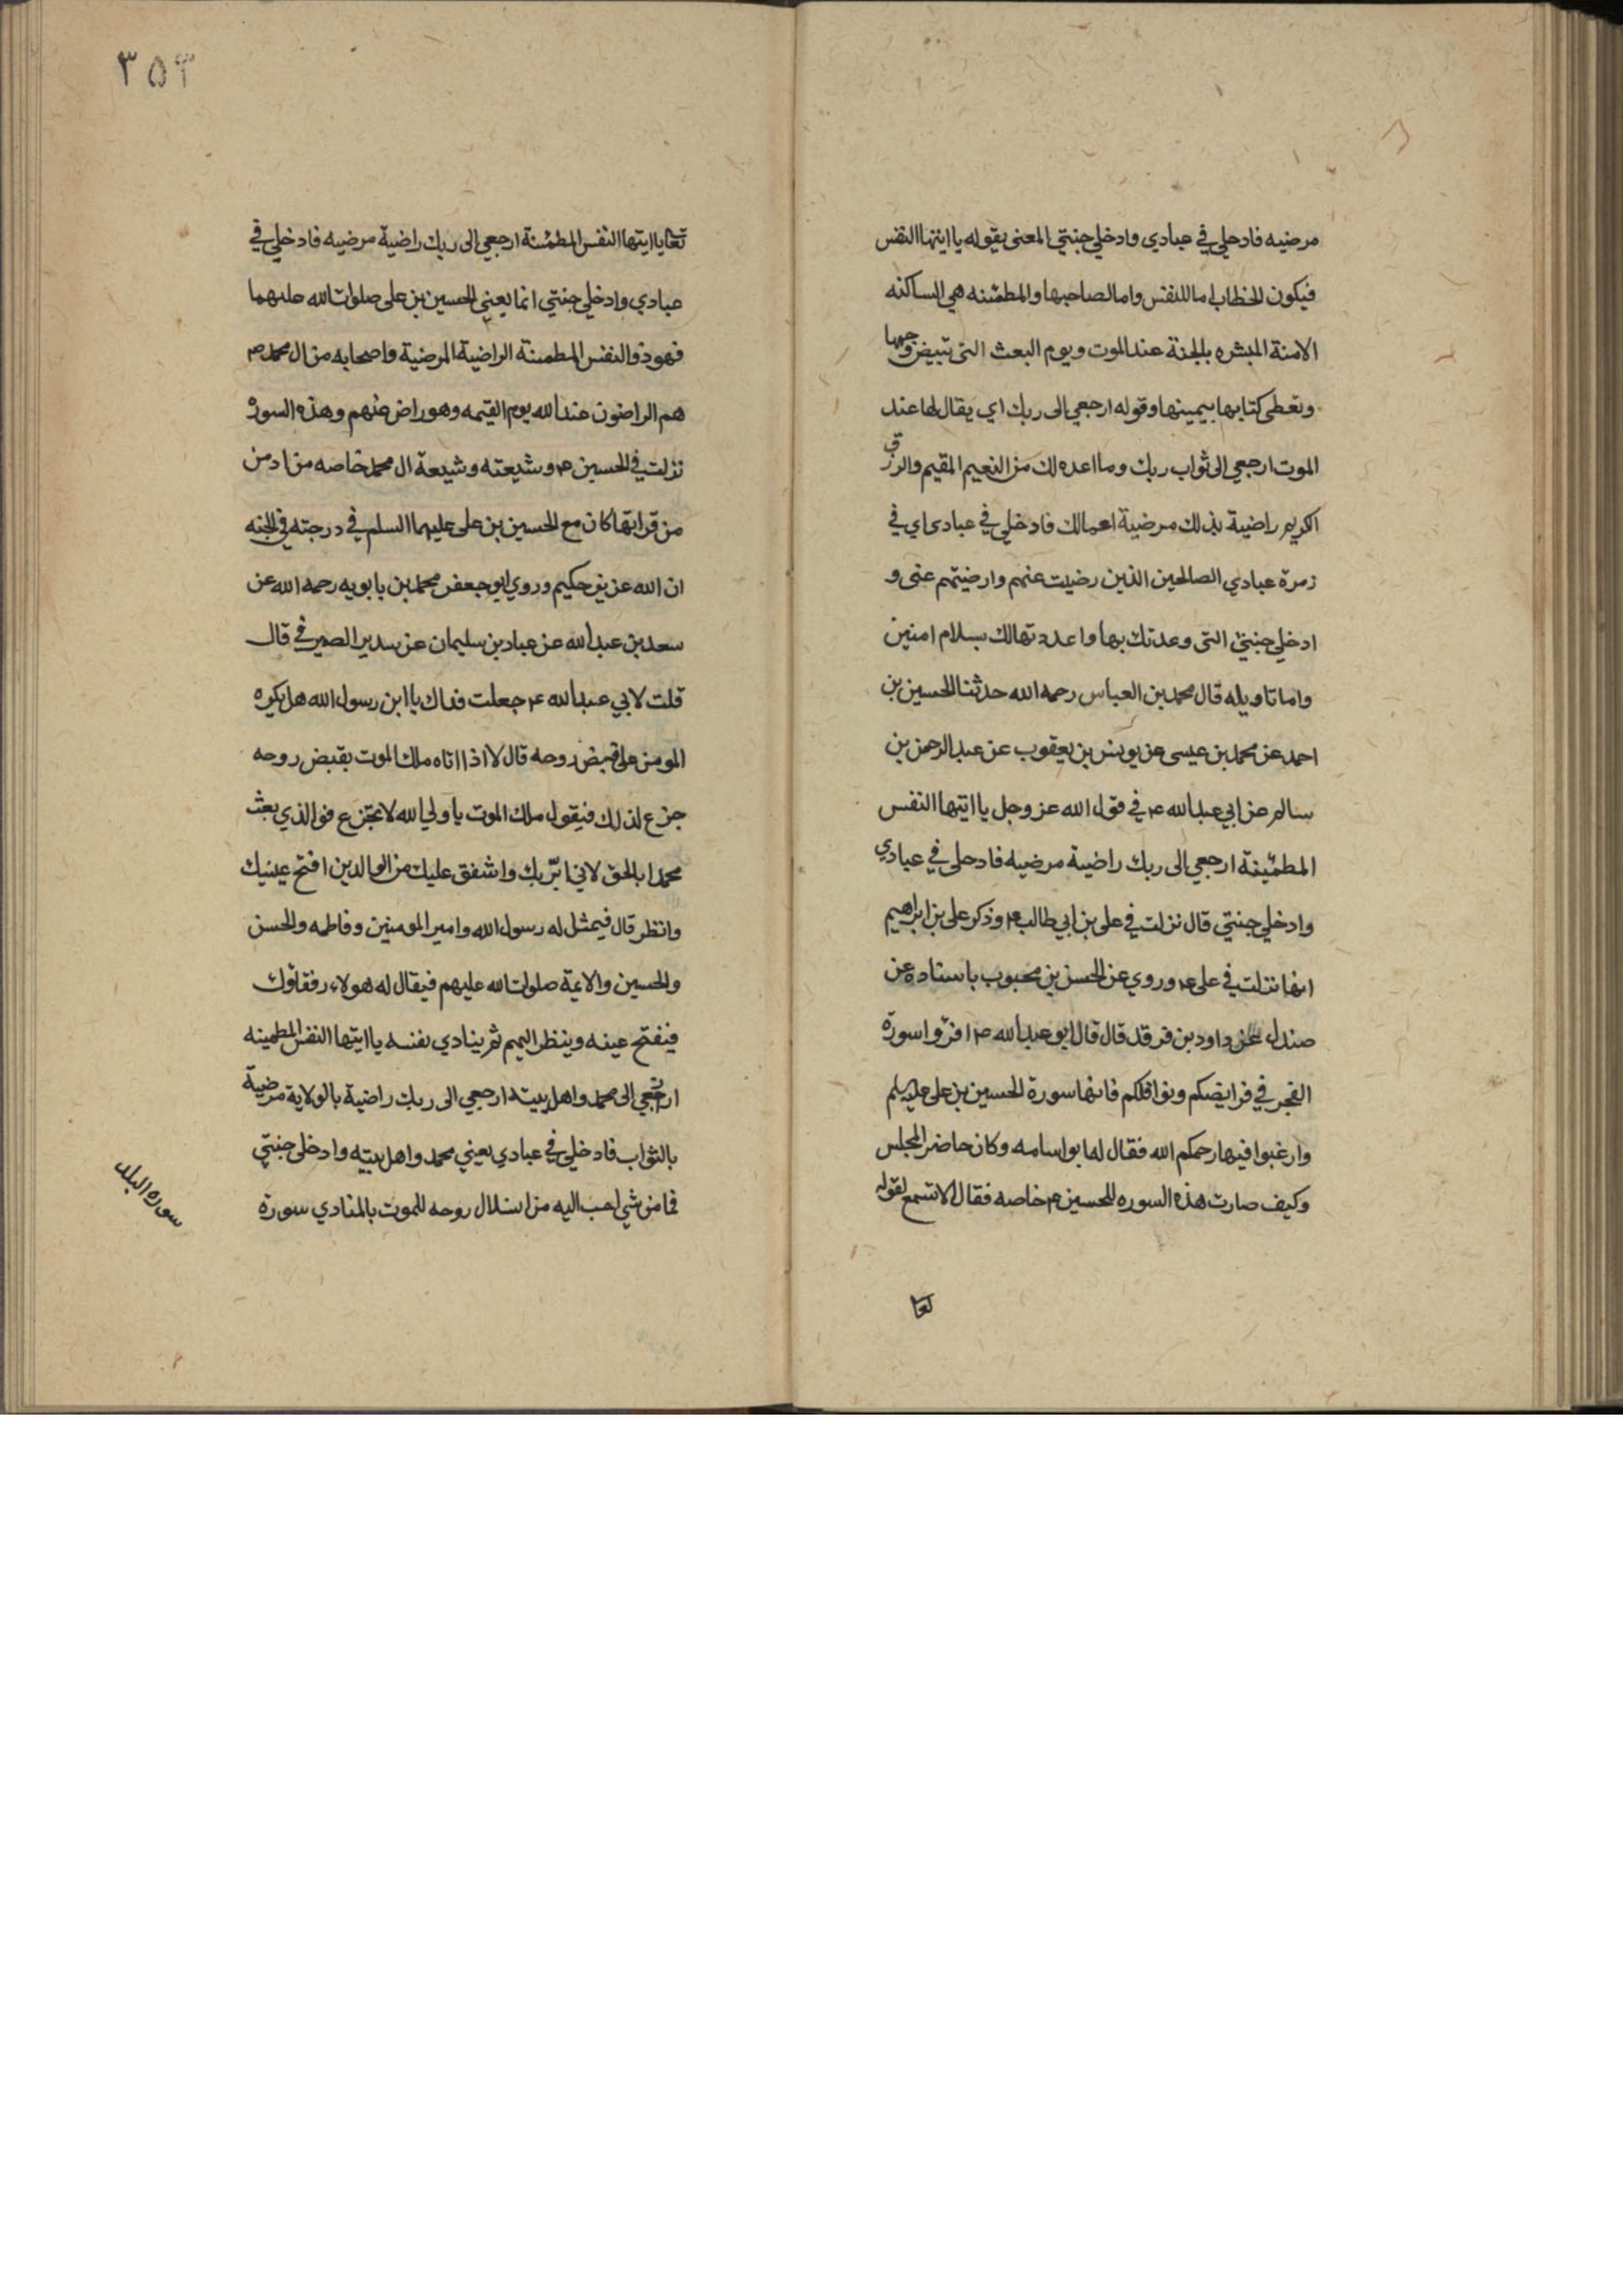 مرضيه فادخلي في عبادي وادخلي جنتي المعنى بقوله يا ايتها النفس
فيكون الخطاب اما للنفس واما لصاحبها والمطمئنه هي الساكنه
الامنة المبشره بالجنة عند الموت ويوم البعث التي تبيض وجهها
وتعطى كتابها بيمينها وقوله ارجعي الى ربك اي يقال لها عند
الموت ارجعي الى ثواب ربك وما اعده لك من النعيم المقيم والرزق
الكريم راضية بذلك مرضية اعمالك فادخلي في عبادى اي في
زمرة عبادي الصالحين الذين رضيت عنهم وارضيتهم عني و
ادخلي جنتي التى وعدتك بها واعددتها لك بسلام امنين
واما تاويله قال محمد بن العباس رحمه الله حدثنا الحسين بن
احمد عن محمد بن عيسى عن يونس بن يعقوب عن عبد الرحمن بن
سالم عن ابي عبد الله ع في قول الله عز وجل يا ايتها النفس
المطمئينة ارجعي الى ربك راضية مرضيه فادخلي في عبادي
وادخلي جنتي قال نزلت في على بن ابي طالب ع وذكر على بن ابراهيم
انها نزلت في على ع وروي عن الحسن بن محبوب باسناده عن
صندل عن داود بن فرقد قال قال ابو عبد الله ع اقرؤا سورة
الفجر في فرايضكم ونوافلكم فانها سورة الحسين بن على عليه السلم
وارغبوا فيها رحمكم الله فقال له ابو اسامه وكان حاضر المجلس
وكيف صارت هذه السوره للحسين ع خاصه فقال الا تسمع لقوله
تعا
٣٥٣
تعا يا ايتها النفس المطمئنة ارجعي الى ربك راضية مرضيه فادخلي في
عبادي وادخلي جنتي انما يعني الحسين بن على صلوات الله عليهما
فهو ذو النفس المطمىنة الراضية المرضية واصحابه من ال محمد ص
هم الراضون عند الله يوم القيمه وهو راض عنهم وهذه السورة
نزلت في الحسين ع وشيعته وشيعة ال محمد خاصه من ادمن
من قرايتها كان مع الحسين بن على عليهما السلم في درجته في الجنه
ان الله عزيز حكيم وروي ابو جعفر محمد بن بابويه رحمه الله عن
سعد بن عبد الله عن عباد بن سليمان عن سدير الصيرفي قال
قلت لابي عبد الله ع جعلت فداك يا ابن رسول الله هل يكره
المومن على قبض روحه قال لا اذا اتاه ملك الموت يقبض روحه
جزع لذلك فيقول ملك الموت يا ولي الله لا تجزع فو الذي بعث
محمدا بالحق لانا ابر بك واشفق عليك من الوالدين افتح عينيك
وانظر قال فيمثل له رسول الله وامير المومنين وفاطمه والحسن
والحسين والايمة صلوات الله عليهم فيقال له هولاء رفقاؤك
فيفتح عينه وينظر اليهم ثم ينادي نفسه يا ايتها النفس المطمينه
ارجعي الى محمد واهل بيته ارجعي الى ربك راضية بالولاية مرضية
بالثواب فادخلي في عبادي يعني محمد واهل بيته وادخلي جنتي
فما من شي احب اليه من استلال روحه للموت بالمنادي سورة
سوره البلد